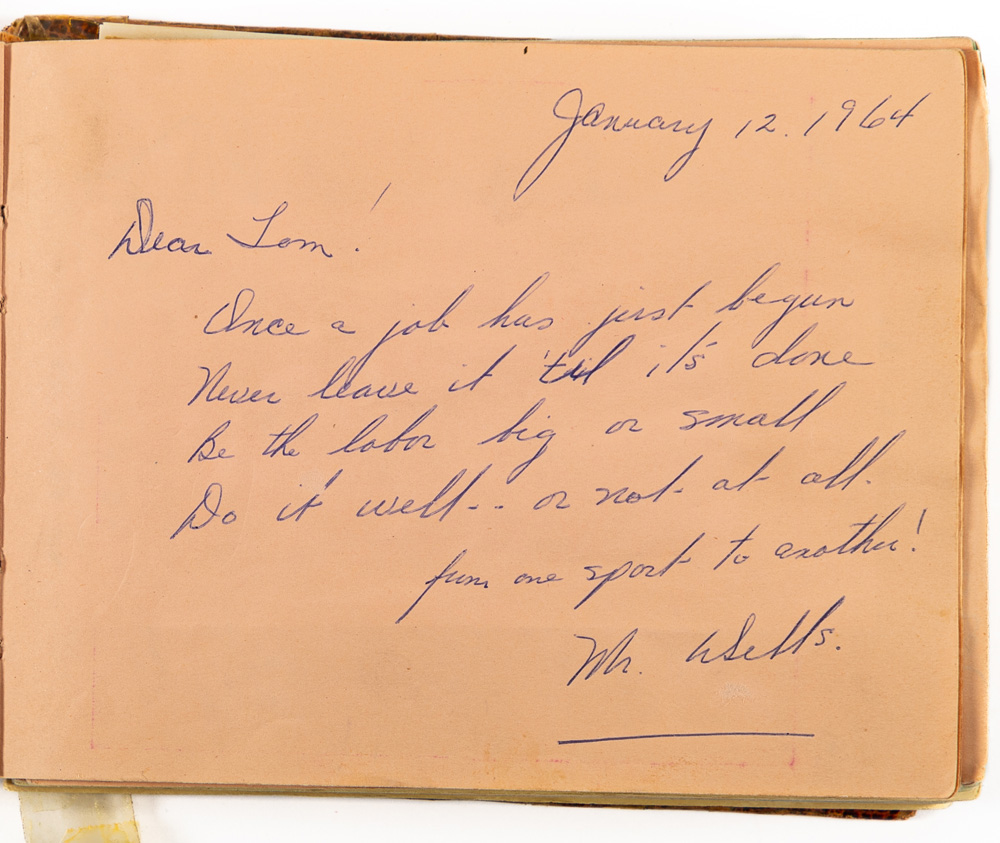 January 12. 1964
Dear Tom!
Once a job has just begun
Never leave it 'til it's done
Be the labor big or small
Do it well-- or not at all.
from one sport to another!
Mr. Wells.